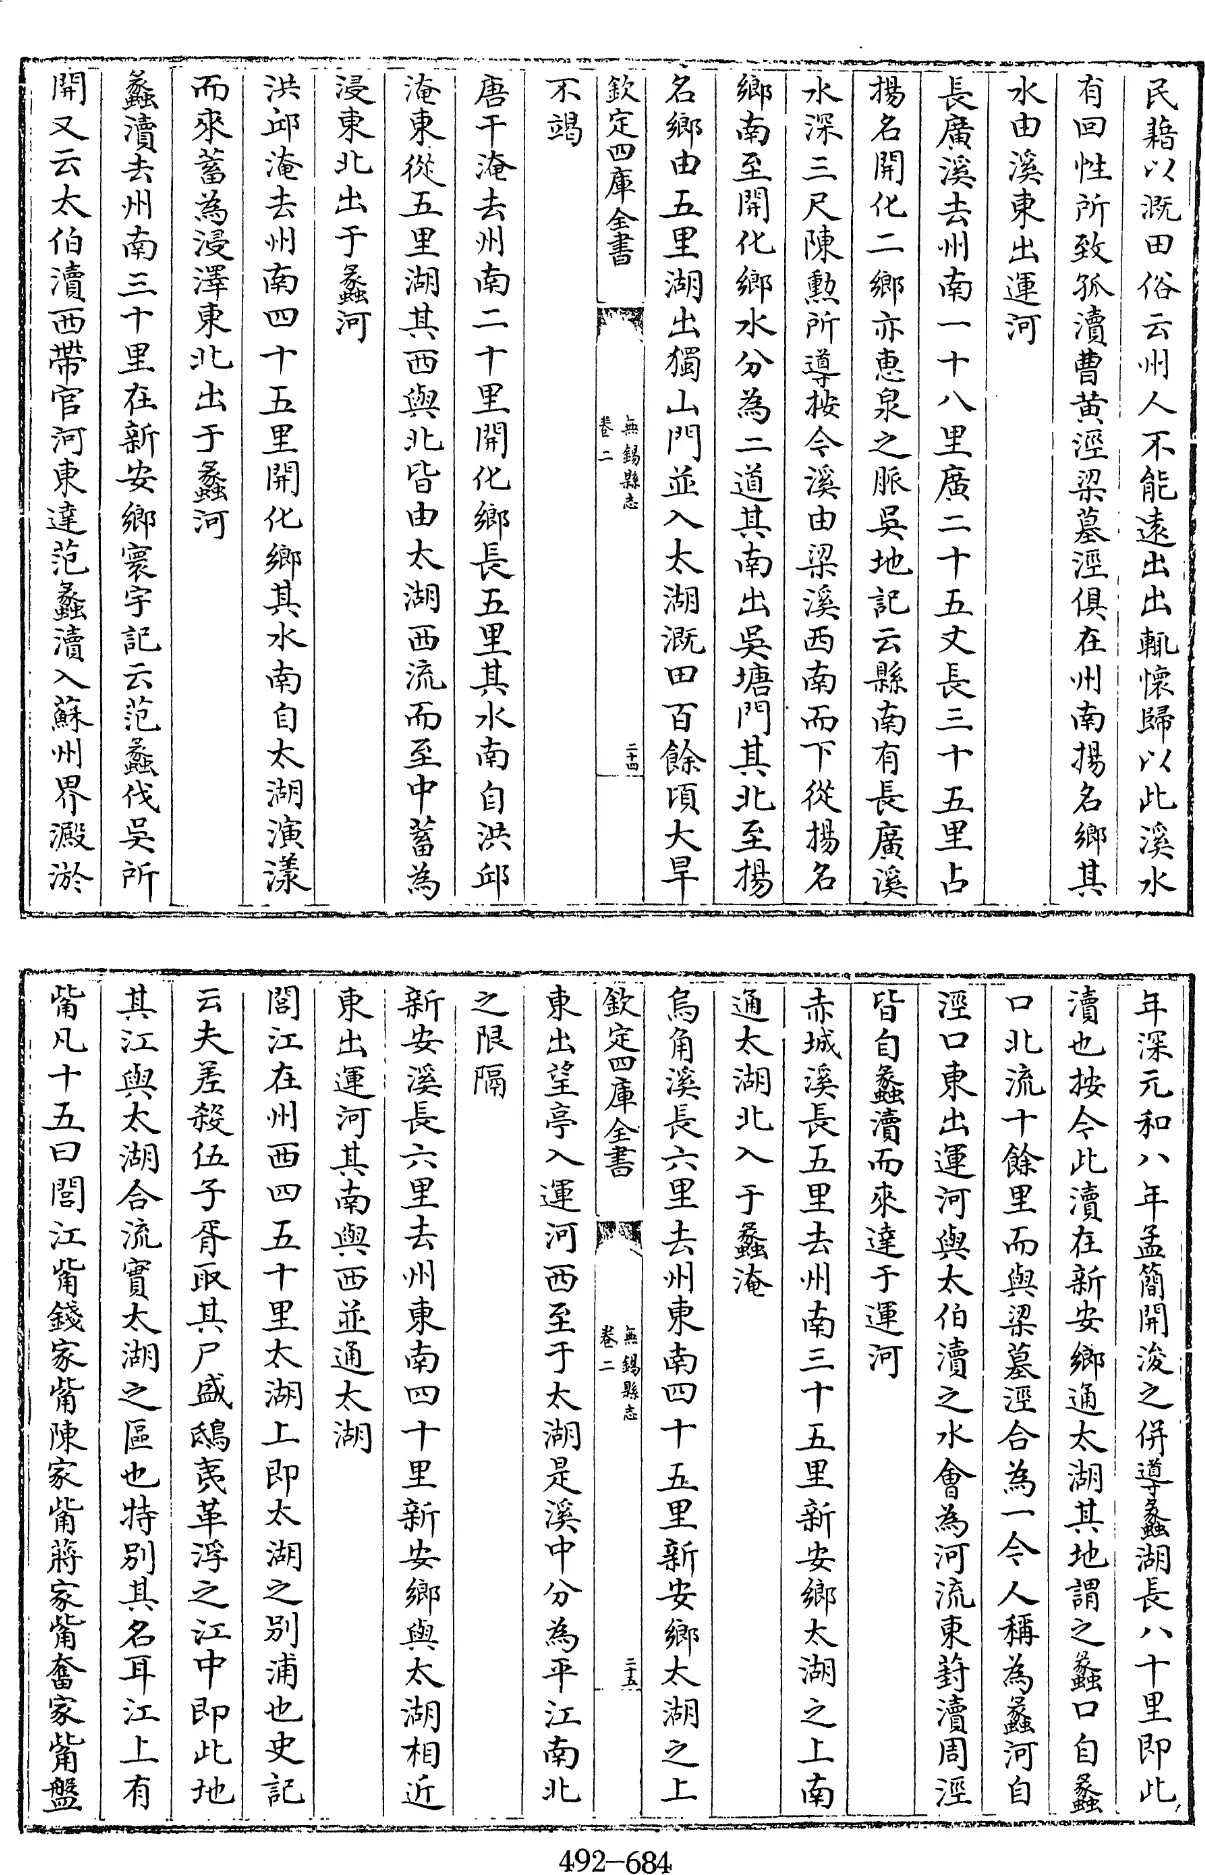 民藉以溉田俗云州人不能遠出出輒懷歸以此溪水
有回性所致孤瀆曹黄涇梁墓涇俱在州南揚名鄉其
水由溪東出運河
長廣溪去州南一十八里廣二十五丈長三十五里占
揚名開化二鄉亦惠泉之脈吳地記云縣南有長廣溪
水深三尺陳勲所導按今溪由梁溪西南而下從揚名
鄉南至開化鄉水分為二道其南出吳塘門其北至揚
名鄉由五里湖出獨山門並入太湖溉田百餘頃大旱
欽定四庫全書
無錫縣志
卷二
二十四
不竭
唐干淹去州南二十里開化鄉長五里其水南自洪邱
淹東從五里湖其西與北皆由太湖西流而至中蓄為
浸東北出于蠡河
洪邱淹去州南四十五里開化鄉其水南自太湖演漾
而來蓄為浸澤東北出于蠡河
蠡瀆去州南三十里在新安鄉寰宇記云范蠡伐吳所
開又云太伯瀆西帶官河東達范蠡瀆入蘇州界澱淤
年深元和八年孟簡開浚之併導蠡湖長八十里即此
瀆也按今此瀆在新安鄉通太湖其地謂之蠡口自蠡
口北流十餘里而與梁墓涇合為一今人稱為蠡河自
涇口東出運河與太伯瀆之水會為河流東葑瀆周涇
皆自蠡瀆而來達于運河
赤城溪長五里去州南三十五里新安鄉太湖之上南
通太湖北入于蠡淹
烏角溪長六里去州東南四十五里新安鄉太湖之上
欽定四庫全書
無錫縣志
卷二
二十五
東出望亭入運河西至于太湖是溪中分為平江南北
之限隔
新安溪長六里去州東南四十里新安鄉與太湖相近
東出運河其南與西並通太湖
閭江在州西四五十里太湖上即太湖之别浦也史記
云夫差殺伍子胥取其尸盛鴟夷革浮之江中即此地
其江與太湖合流實太湖之區也特别其名耳江上有
嘴凡十五曰閭江嘴錢家嘴陳家嘴蔣家嘴奮家嘴盤
492-684